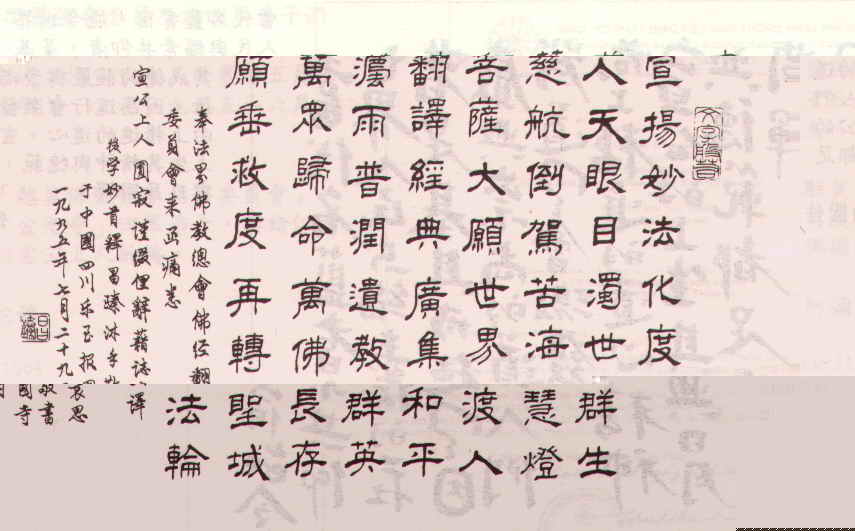 文字般若
宣揚妙法化度群生
人天眼目濁世慧燈
慈航倒駕苦海渡人
菩薩大願世界和平
翻譯經典廣集群英
灋雨普潤遺教長存
萬眾歸命萬佛聖城
願垂救度再轉法輪
奉法界佛教總會佛经翻譯
委員會来函痛悉
宣公上人圓寂謹綴俚辭藉誌哀思
後学釋昌臻沐手敬書
于中國四川乐至报國寺
一九九五年七月二十九日